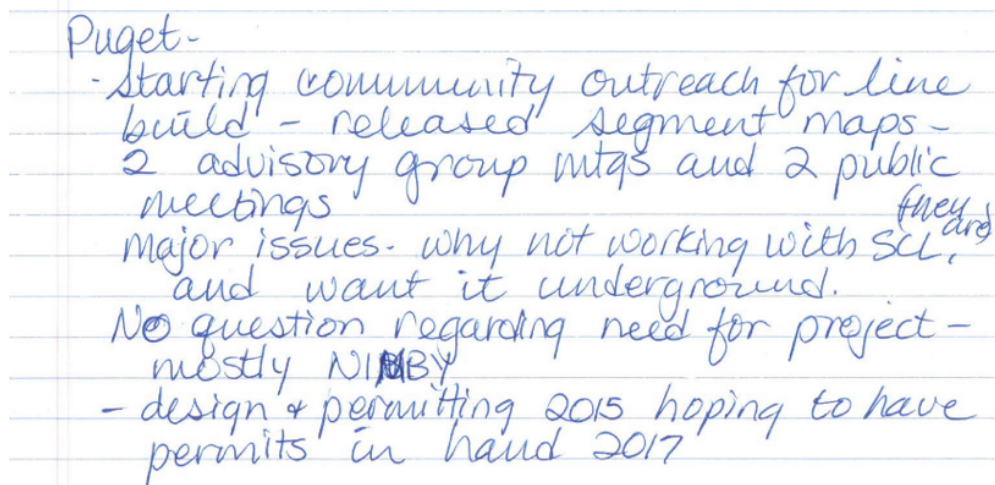 Puget-
- Starting community outreach for line
build - released segment maps -
2 advisory group mtgs and 2 public
meetings
they are
major issues - why not working with SCL,
and want it underground.
No question regarding need for project -
mostly NIMBY
- design & permitting 2015 hoping to have
permits in hand 2017